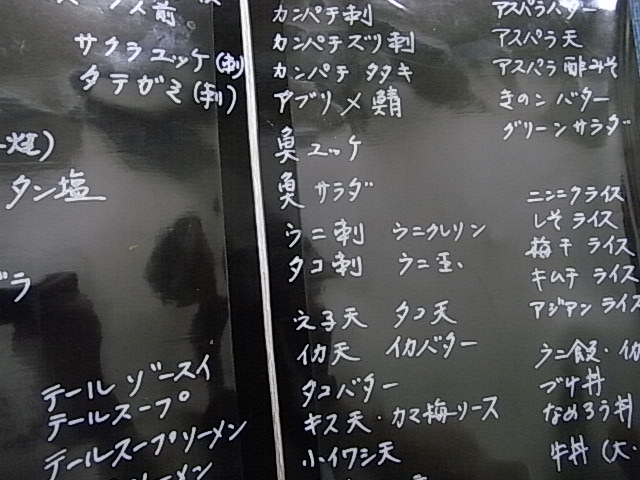 人前
サクラユッケ(刺)
タテガミ(刺)
タン塩
テールゾースイ
テールスープ
テールスープソーメン
ソーメン
カンパチ刺
カンパチズツ刺
カンパチ タタキ
アブリ〆鯖
魚ユッケ
魚サラダ
ウニ刺 ウニクレソン
タコ刺 ウニ玉
穴子天 タコ天
イカ天 イカバター
タコバター
キス天・カマ梅ソース
小イワシ天
アスパラバター
アスパラ天
アスパラ酢みそ
きのこバター
グリーンサラダ
ニンニクライス
しそライス
梅干ライス
キムチライス
アジアンライス
ウニ飯・イカ
づけ丼
なめろう丼
牛丼(大・